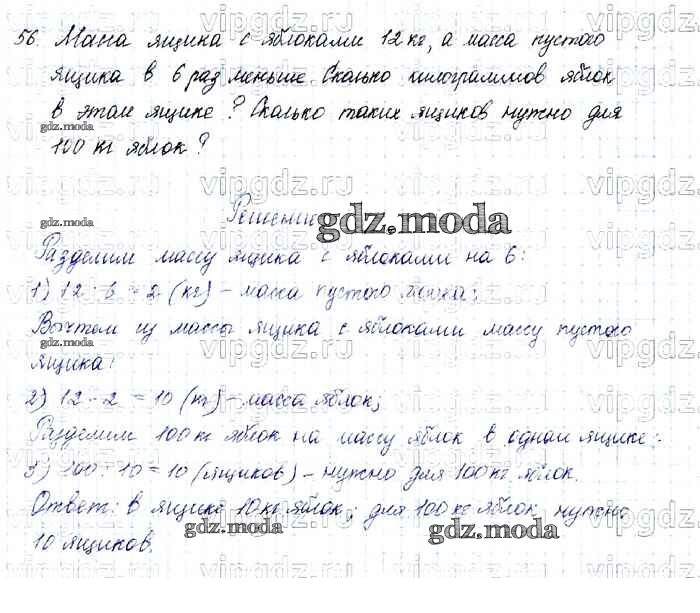 56. Масса ящика с яблоками 12 кг, а масса пустого
ящика в 6 раз меньше. Сколько килограммов яблок
в этом ящике? Сколько таких ящиков нужно для
100 кг яблок?
Решение
Разделим массу ящика с яблоками на 6:
1) 12 : 6 = 2 (кг) – масса пустого ящика;
Вычтем из массы ящика с яблоками массу пустого
ящика:
2) 12 - 2 = 10 (кг) – масса яблок;
Разделим 100 кг яблок на массу яблок в одном ящике:
3) 100 : 10 = 10 (ящиков) – нужно для 100 кг яблок.
Ответ: в ящике 10 кг яблок; для 100 кг яблок нужно
10 ящиков.
gdz.moda
vipgdz.ru